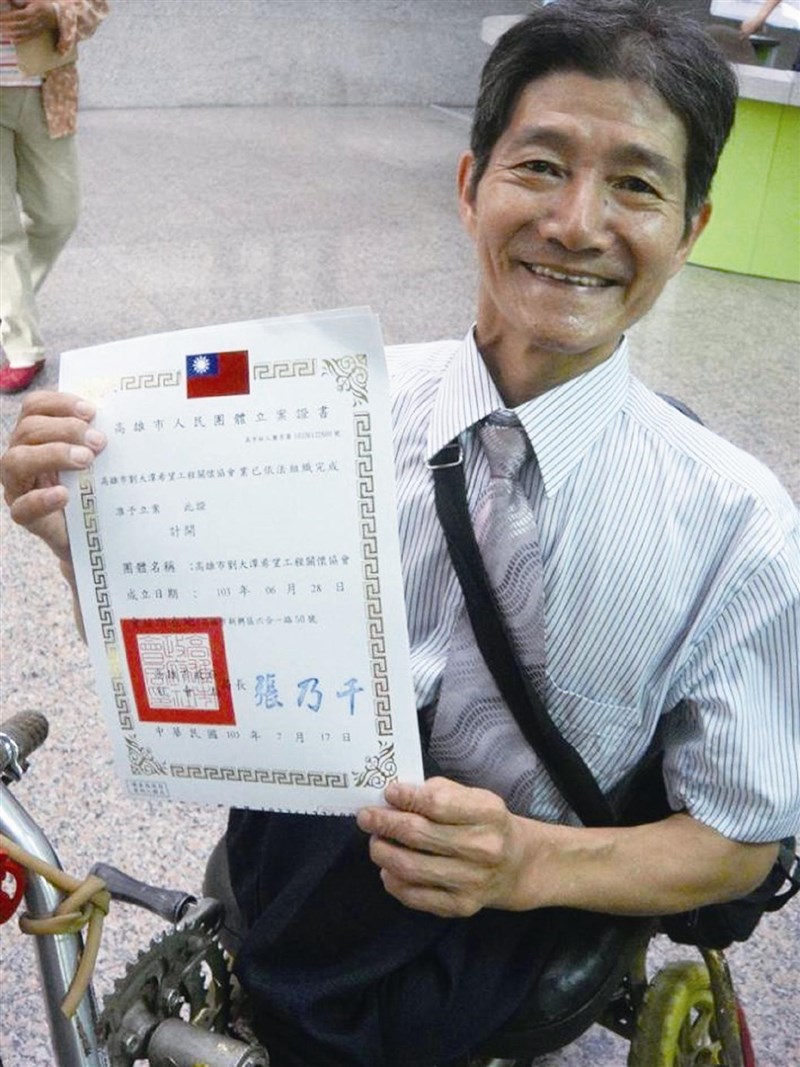 高雄市人民團體立案證書
高雄市劉大潭希望工程關懷協會業已依法組織完成
准予立案　此證
計開
團體名稱：高雄市劉大潭希望工程關懷協會
成立日期：103 年 06 月 28 日
高雄市新興區六合一路50號
局長 張乃千
中華民國 103 年 7 月 17 日